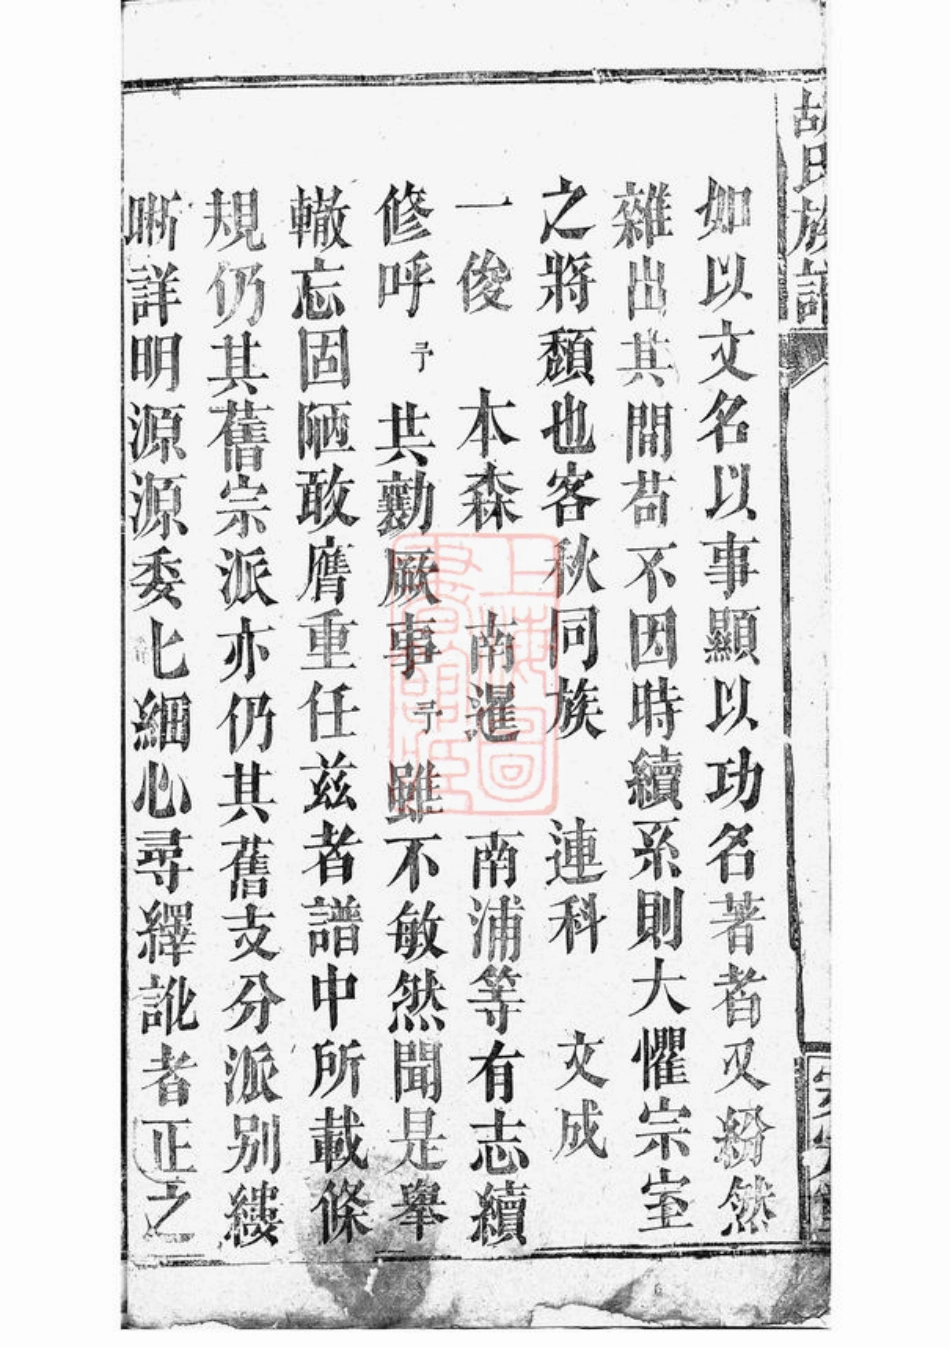 胡氏族譜
如以文名以事顯以功名著者又紛然
雜出其間苟不因時續系則大懼宗室
之將頽也客秋同族 連科 文成
一俊 本森 南暹 南浦等有志續
修呼 予 共勷厥事 予 雖不敏然聞是舉
轍忘固陋敢膺重任茲者譜中所載條
規仍其舊宗派亦仍其舊支分派別縷
晰詳明源源委七細心尋繹訛者正之
上海圖書館藏